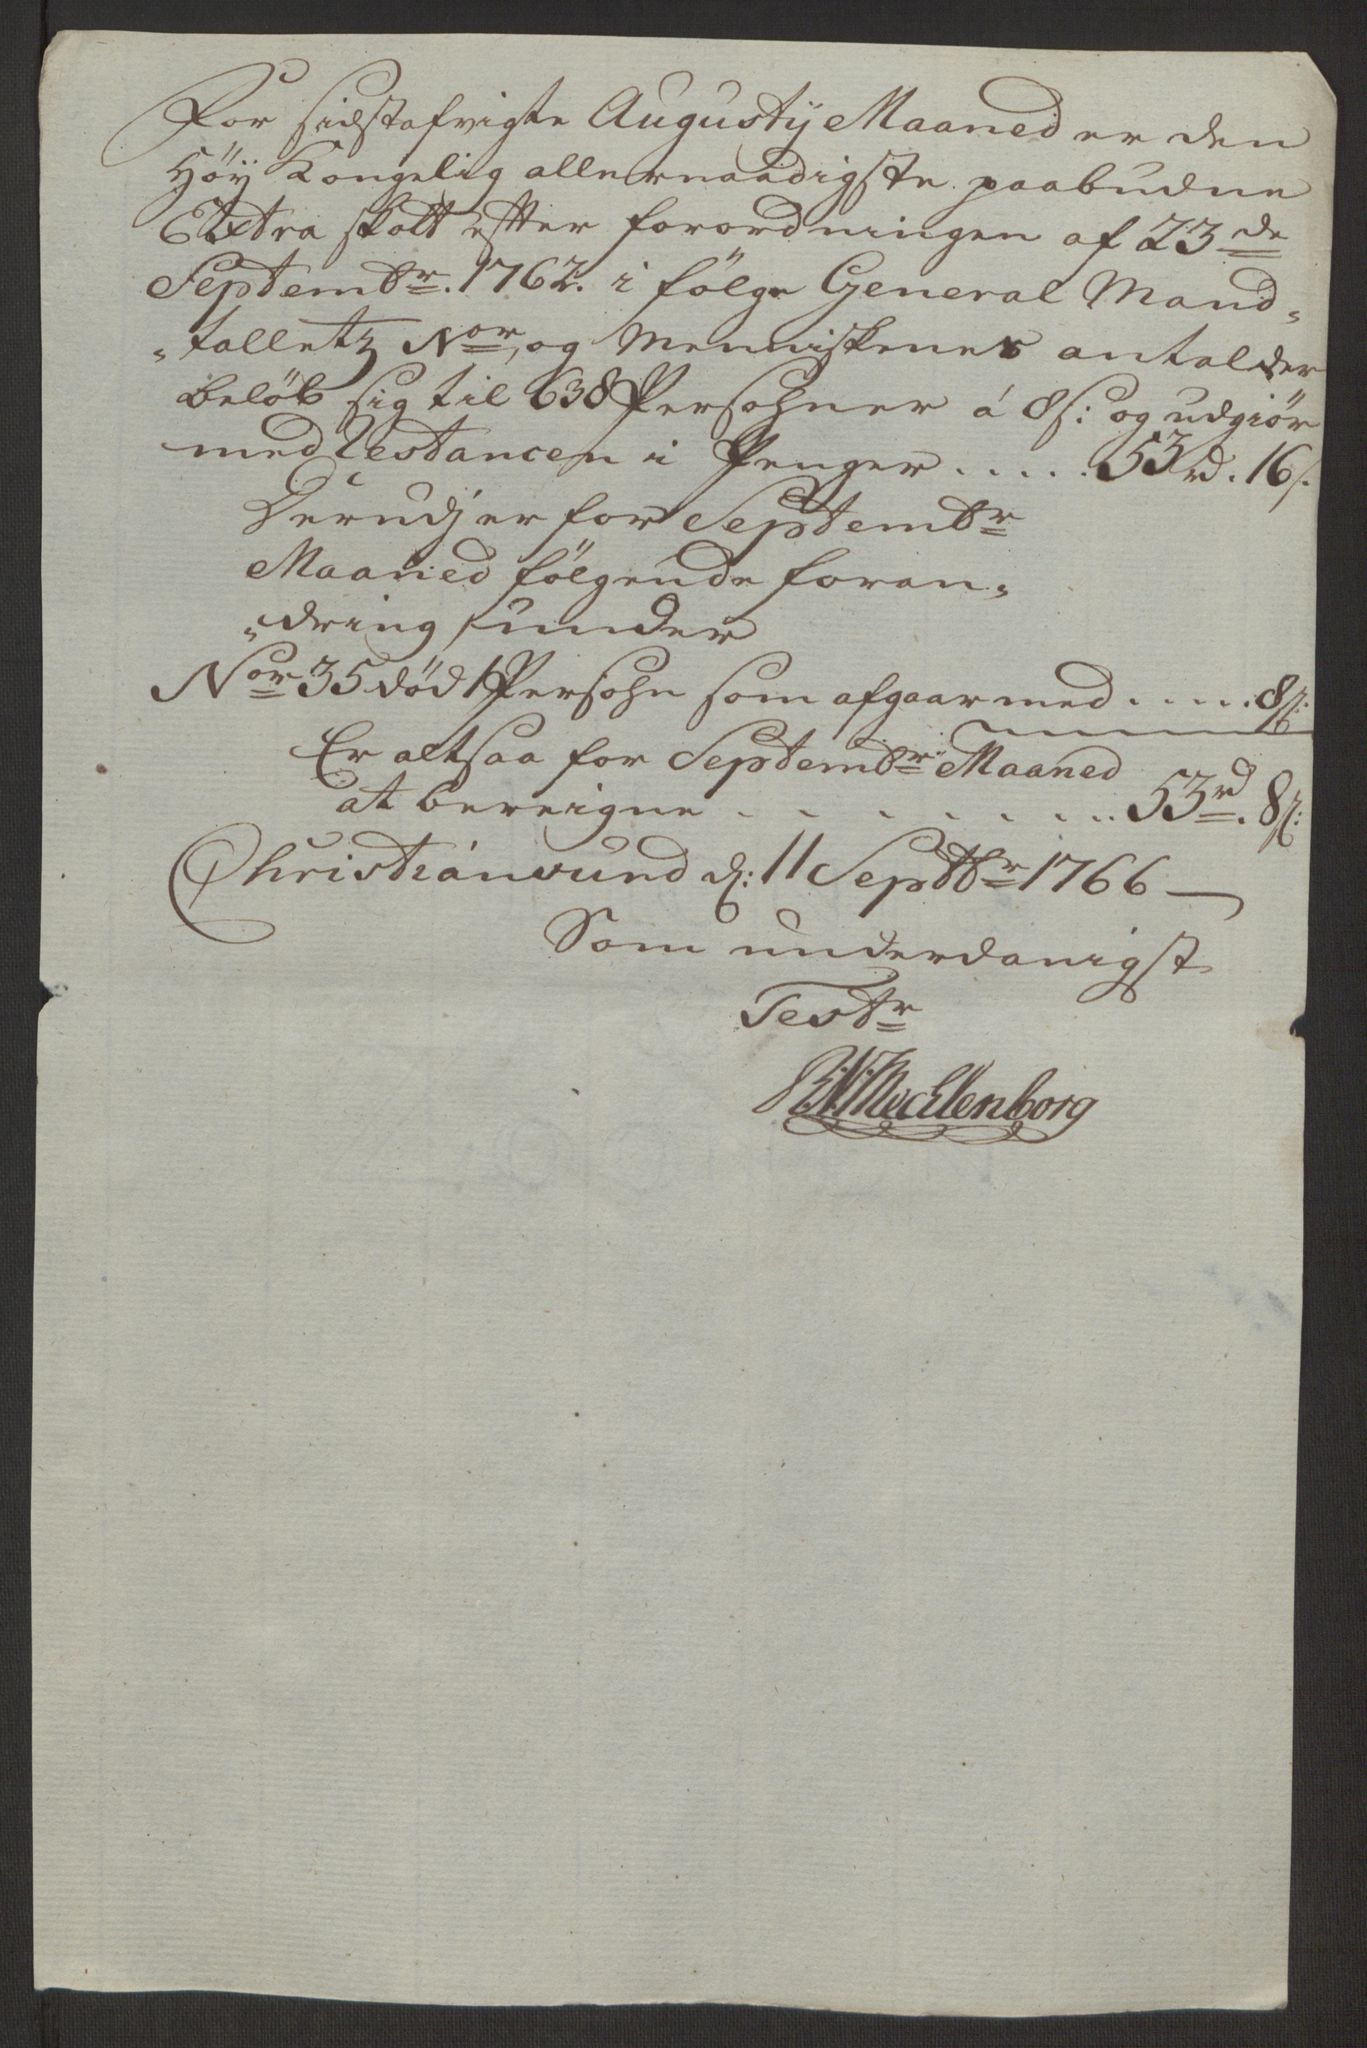 For sidstafvigte Augustij Maaned er den
Höÿ Kongelig allernaadigste paabudne
Extra skatt efter forordningen af 23de
Septembr. 1762. i fölge General Mand„
„talletz Nor, og Menniskenes antal der
belöb sig til 638 Persohner á 8s: og udgiör
med Restancen i Penger . . . . . 53rd. 16s.
Derudj er for Septembr
Maaned fölgende foran„
„dring under
Nor 35 död 1 Persohn som afgaar med . . . . . 8s:
Er altsaa for Septembr Maaned
at bereigne . . . . . . . . 53rd. 8s:
Christiansund d: 11 Septbr 1766
Som underdanigst
Testr
R:N:Mechlenborg